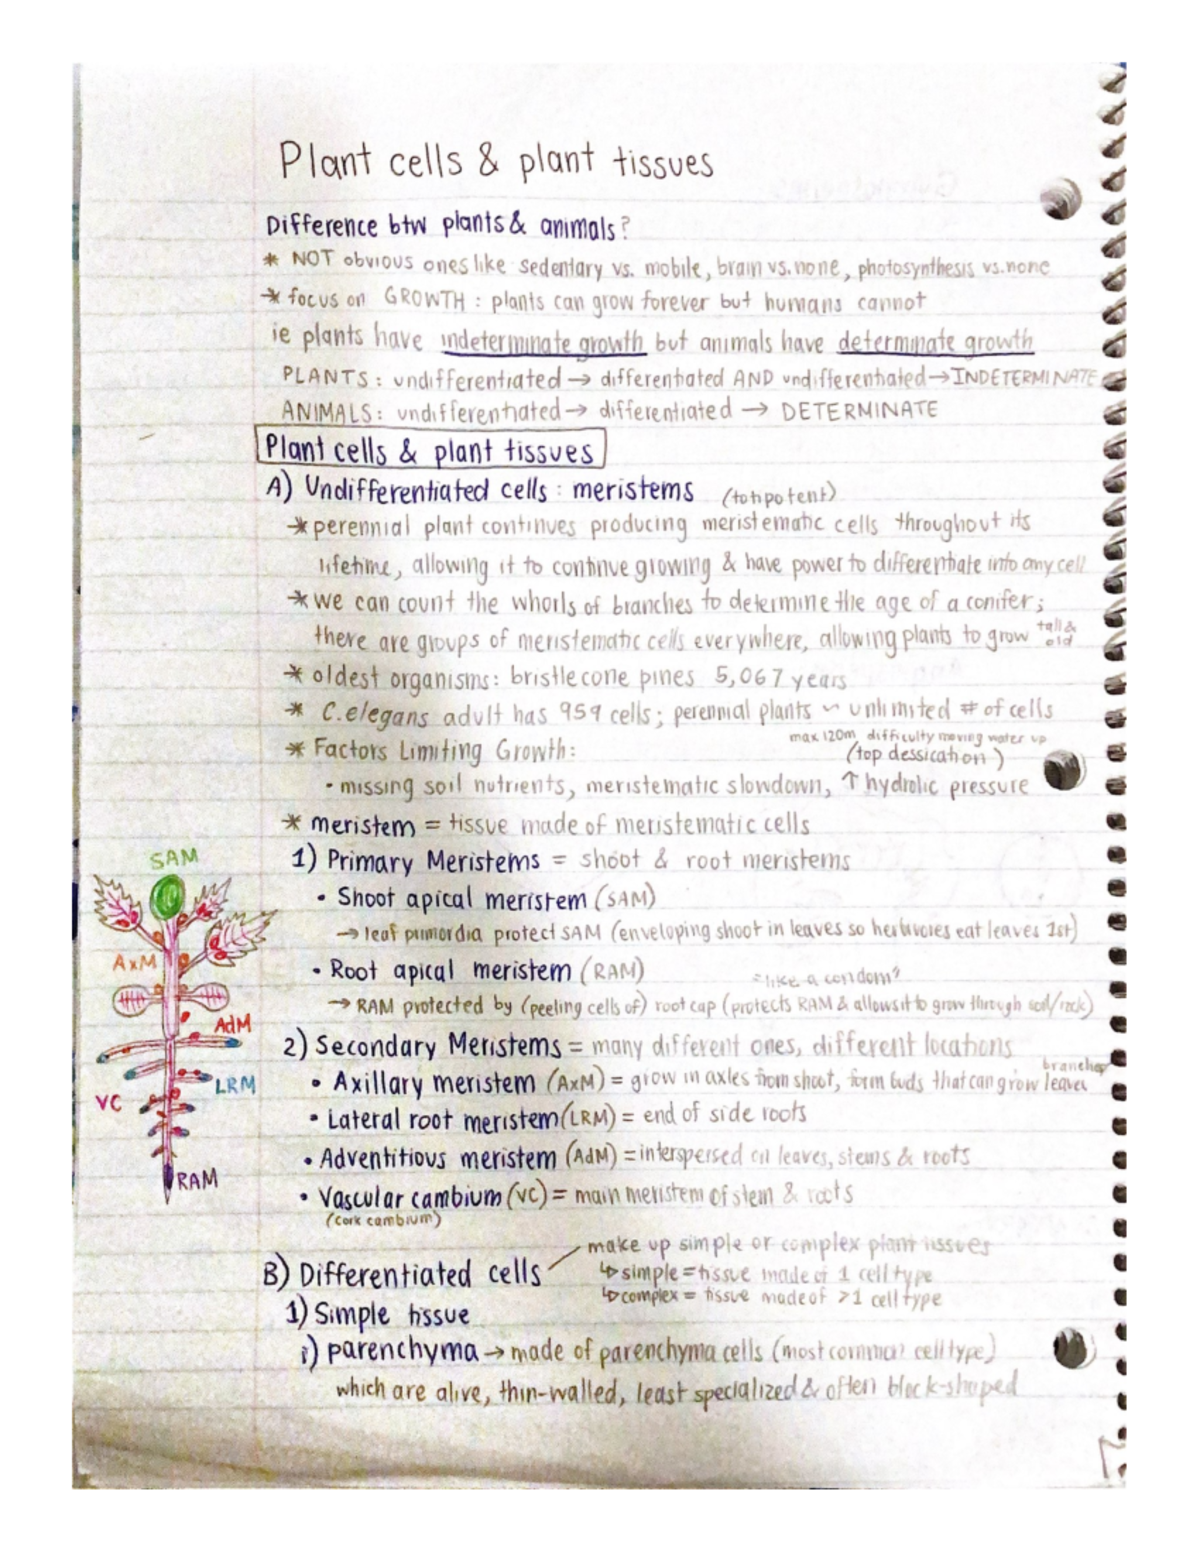 Plant cells & plant tissues
Difference btw plants & animals?
* NOT obvious ones like sedentary vs. mobile, brain vs. none, photosynthesis vs. none
* focus on GROWTH : plants can grow forever but humans cannot
ie plants have indeterminate growth but animals have determinate growth
PLANTS : undifferentiated → differentiated AND undifferentiated → INDETERMINATE
ANIMALS : undifferentiated → differentiated → DETERMINATE
Plant cells & plant tissues
A) Undifferentiated cells : meristems (totipotent)
* perennial plant continues producing meristematic cells throughout its
lifetime, allowing it to continue growing & have power to differentiate into any cell
* we can count the whorls of branches to determine the age of a conifer;
there are groups of meristematic cells everywhere, allowing plants to grow tall & old
* oldest organisms: bristlecone pines 5,067 years
* C.elegans adult has 959 cells; perennial plants ~ unlimited # of cells
max 120m difficulty moving water up
* Factors Limiting Growth: (top dessication)
• missing soil nutrients, meristematic slowdown, ↑ hydrolic pressure
* meristem = tissue made of meristematic cells
1) Primary Meristems = shoot & root meristems
• Shoot apical meristem (SAM)
→ leaf primordia protect SAM (enveloping shoot in leaves so herbivores eat leaves 1st)
• Root apical meristem (RAM) = like a condom?
→ RAM protected by (peeling cells of) root cap (protects RAM & allows it to grow through soil/rock)
2) Secondary Meristems = many different ones, different locations
branches
• Axillary meristem (AxM) = grow in axles from shoot, form buds that can grow leaves
• Lateral root meristem (LRM) = end of side roots
• Adventitious meristem (AdM) = interspersed on leaves, stems & roots
• Vascular cambium (VC) = main meristem of stem & roots
(cork cambium)
SAM
AxM
AdM
LRM
VC
RAM
make up simple or complex plant tissues
B) Differentiated cells
↳ simple = tissue made of 1 cell type
↳ complex = tissue made of >1 cell type
1) Simple tissue
i) parenchyma → made of parenchyma cells (most common cell type)
which are alive, thin-walled, least specialized & often block-shaped